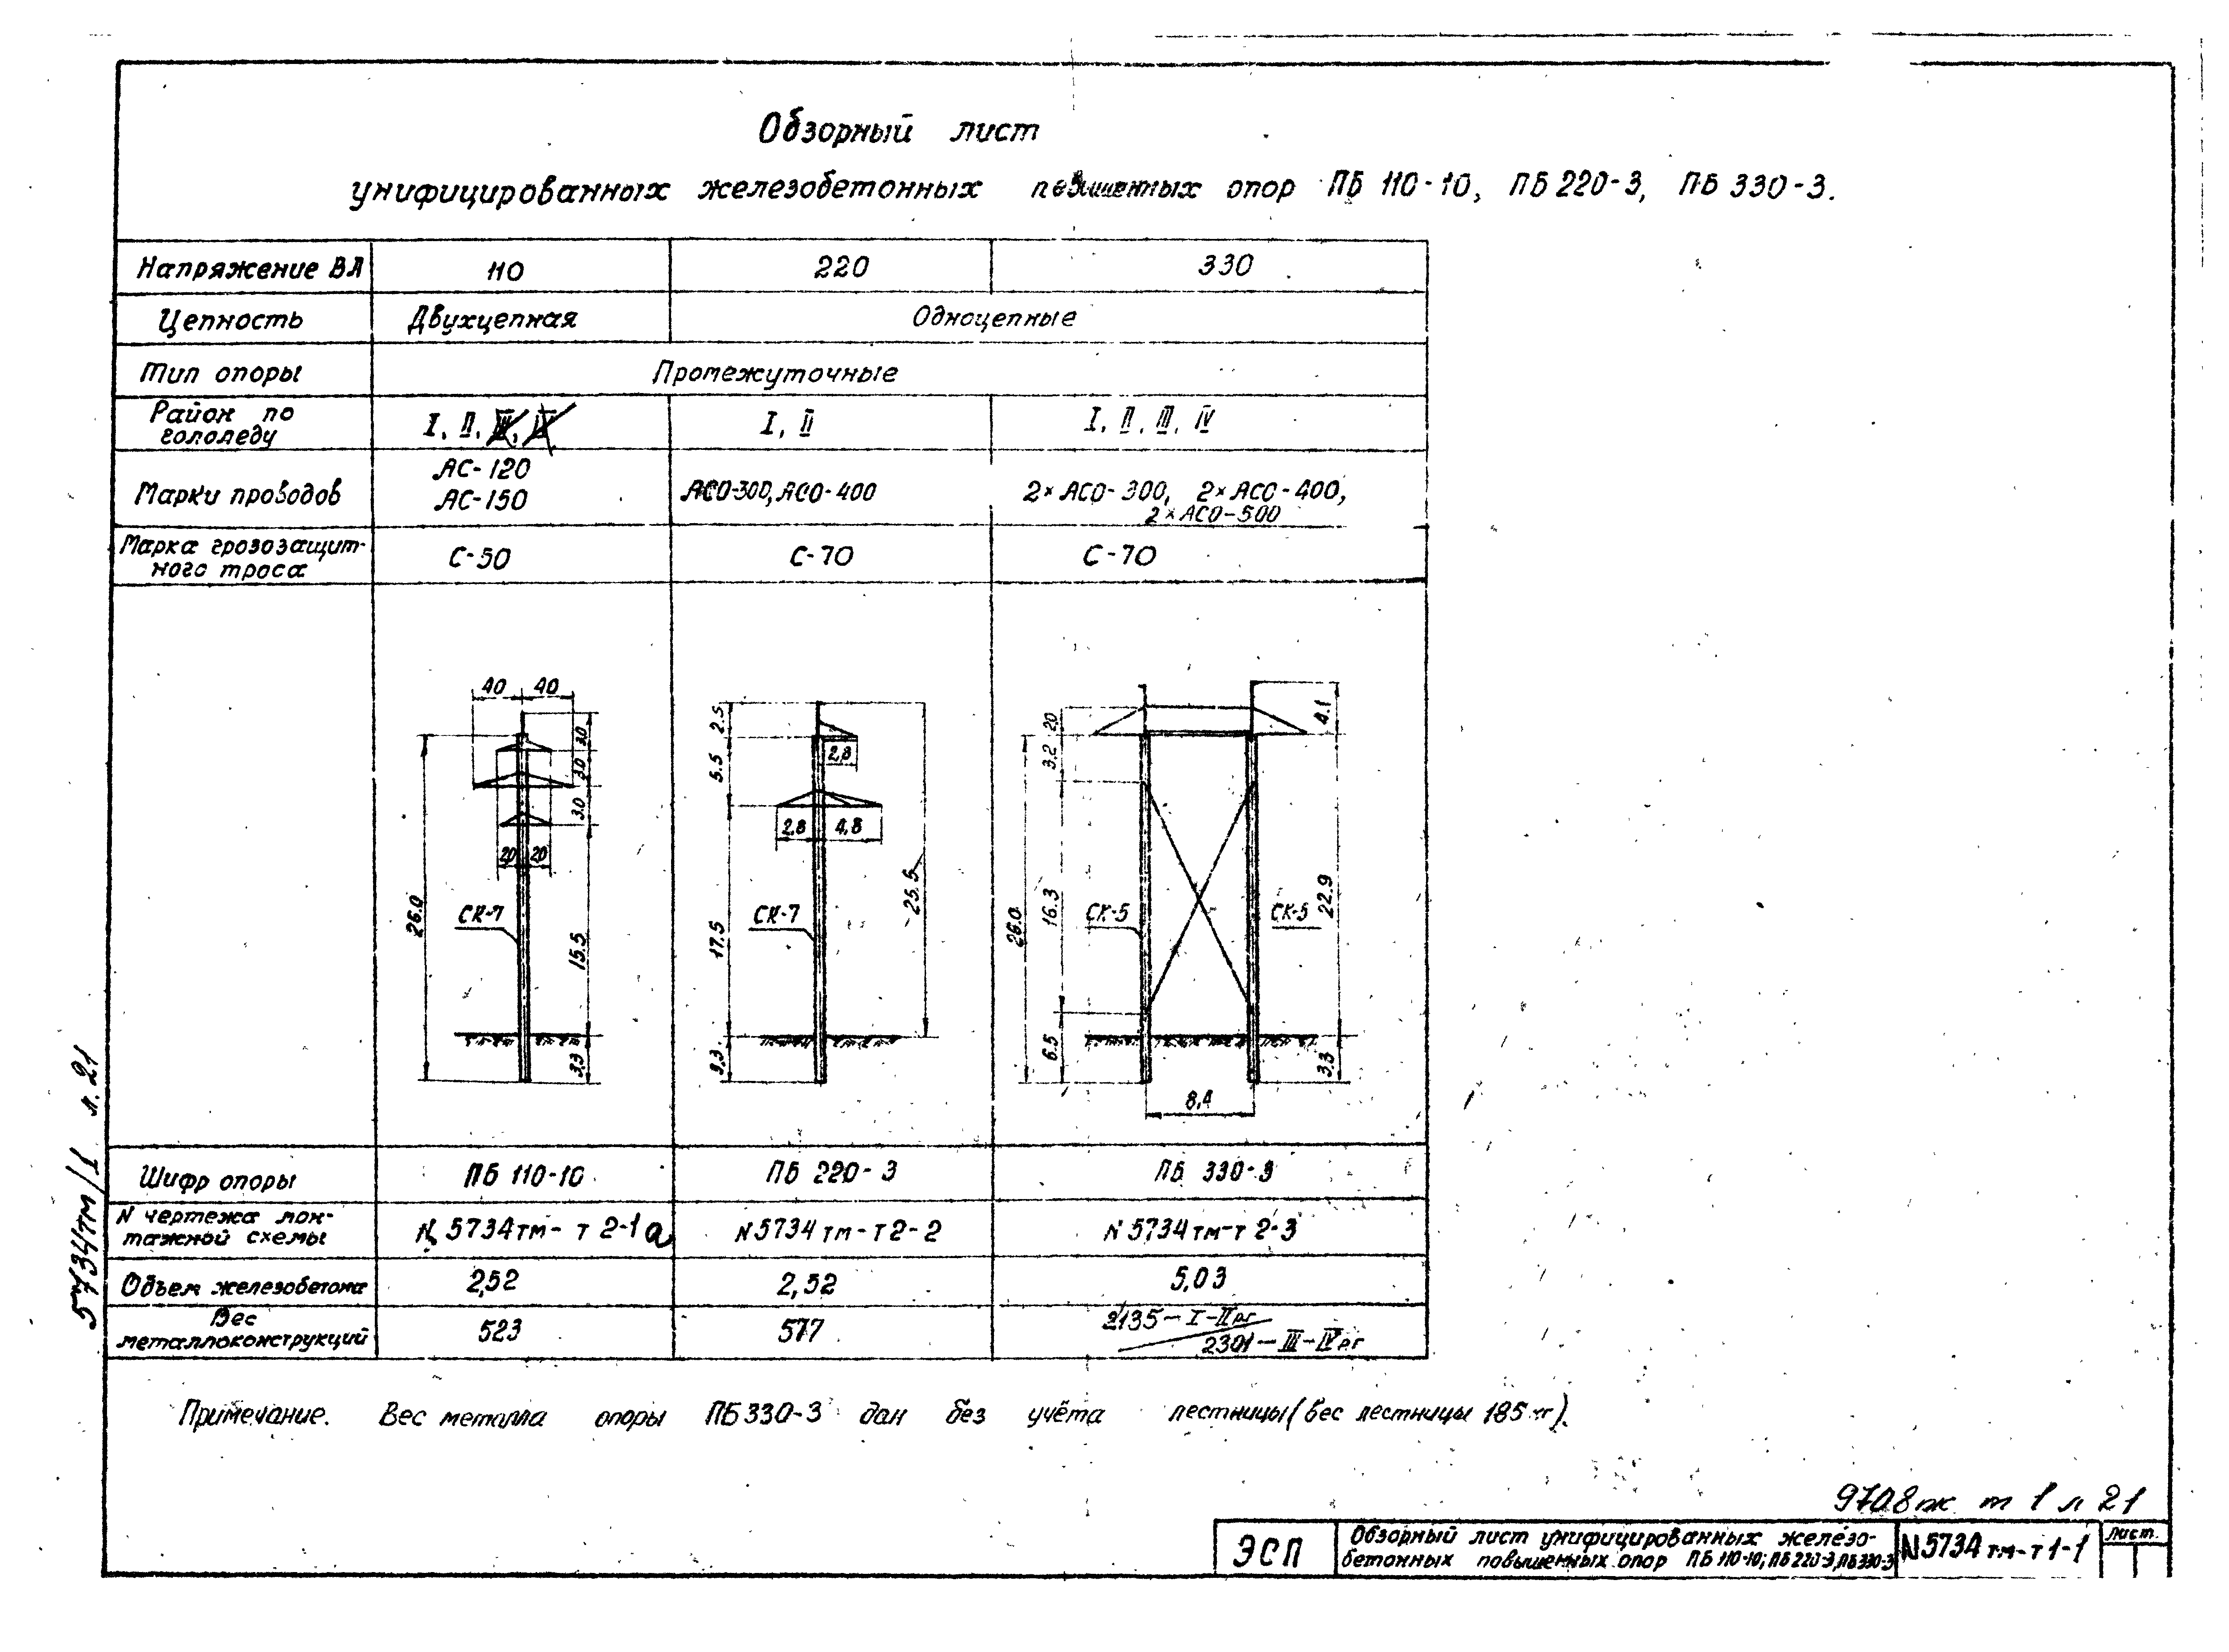 Обзорный лист
унифицированных железобетонных повышенных опор ПБ 110-10, ПБ 220-3, ПБ 330-3.
Напряжение ВЛ 110 220 330
Цепность Двухцепная Одноцепные
Тип опоры Промежуточные
Район по
гололеду
I, II, III, IV I, II I, II, III, IV
Марки проводов
АС-120
АС-150
АСО-300, АСО-400
2×АСО-300, 2×АСО-400,
2×АСО-500
Марка грозозащит-
ного троса
С-50 С-70 С-70
40 40
3.0
3.0
3.0
20 20
26.0
СК-7
15.5
3,3
2.5
5.5
2,8
2,8 4,8
25.5
СК-7
17.5
3,3
20
3.2
4.1
16.3
26.0
СК-5 СК-5
22.9
6.5
3,3
8,4
Шифр опоры ПБ 110-10 ПБ 220-3 ПБ 330-3
N чертежа мон-
тажной схемы
N 5734тм-т 2-1а N5734тм-т2-2 N 5734тм-т 2-3
Объем железобетона 2,52 2,52 5,03
Вес
металлоконструкций
523 577
2135-I-IIрг
2301-III-IVрг
Примечание. Вес металла опоры ПБ330-3 дан без учёта лестницы(вес лестницы 185кг).
5734тм/1 л.21
9708тж т 1 л 21
ЭСП
Обзорный лист унифицированных железо-
бетонных повышенных опор ПБ 110-10; ПБ220-3, ПБ330-3
N5734тм-т1-1
лист.
1